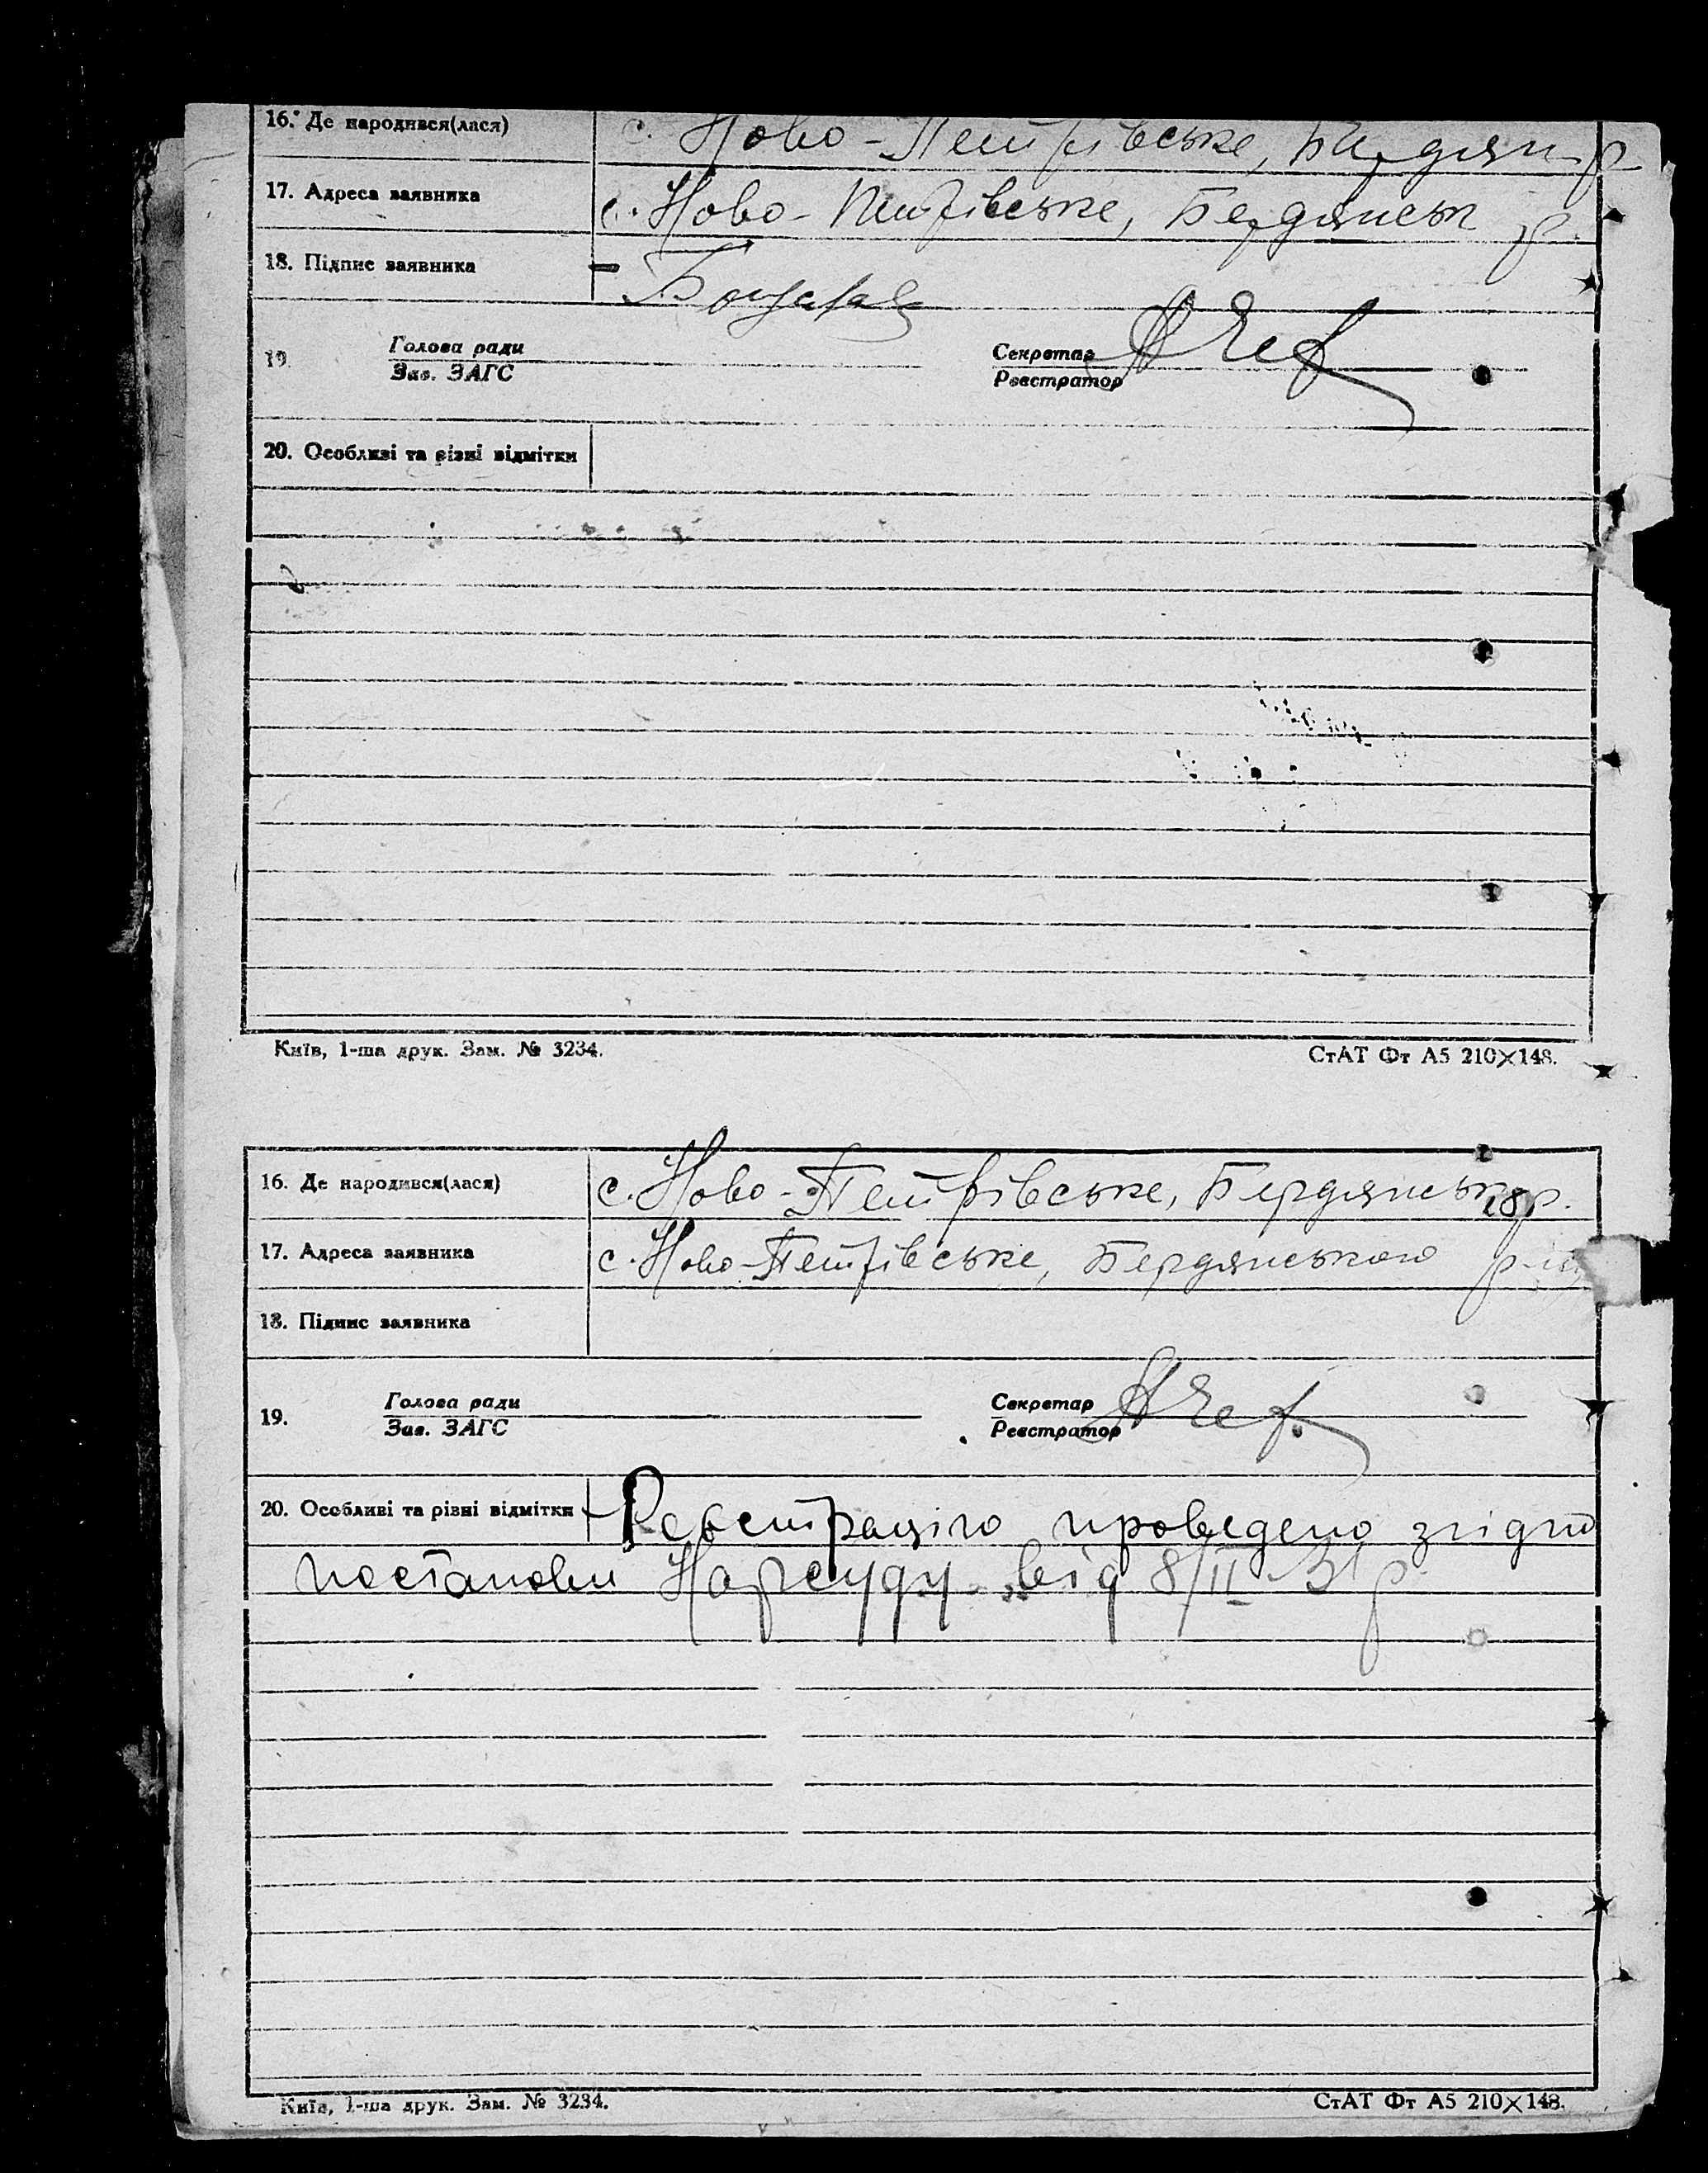 16. Де народився(лася) с. Ново-Петрівське, Бердян р
17. Адреса заявника с. Ново-Петрівське, Бердянськ р.
18. Підпис заявника
19. Голова ради Секретар
Зав. ЗАГС Реєстратор
20. Особливі та різні відмітки
Київ, 1-ша друк. Зам. № 3234. СтАТ Фт А5 210×148.
16. Де народився(лася) с. Ново-Петрівське, Бердянськ р.
17. Адреса заявника с. Ново-Петрівське, Бердянського р-ну
18. Підпис заявника
19. Голова ради Секретар
Зав. ЗАГС Реєстратор
20. Особливі та різні відмітки Реєстрацію проведено згідно
постанови Нарсуду від 8/II 31 р.
Київ, 1-ша друк. Зам. № 3234. СтАТ Фт А5 210×148.